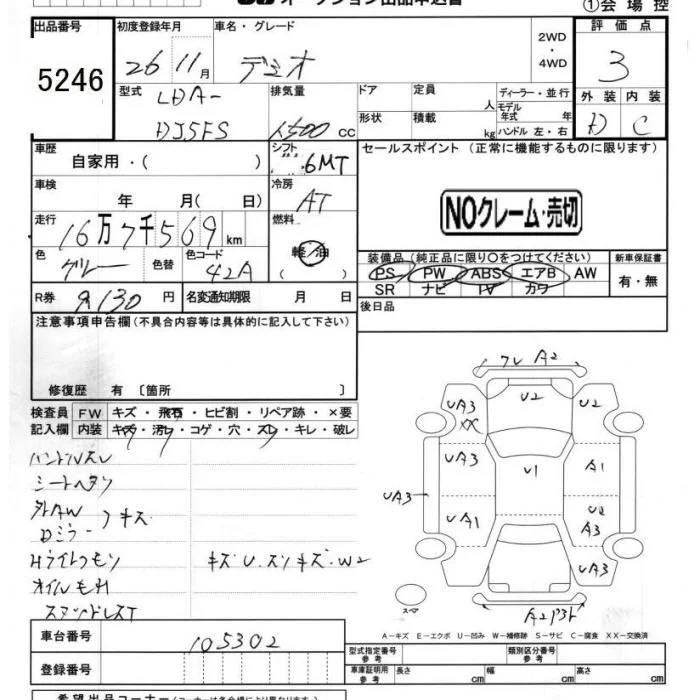 オークション出品申込書
①会場控
出品番号 初度登録年月 車名・グレード 評価点
5246 26 11月 デミオ 2WD・4WD 3
型式 排気量 ドア 定員 人 ディーラー・並行 外装 内装
LDA-DJ5FS 1500 cc 形状 積載 kg モデル年式 年 ハンドル 左・右 D C
車歴 シフト セールスポイント(正常に機能するものに限ります)
自家用・( ) 6MT
車検 冷房
年 月( 日) AT
NOクレーム・売切
走行 燃料
16万7千569km 軽/油
色 色替 色コード ( )
グレー 42A
装備品(純正品に限り○をつけてください) 新車保証書
PS PW ABS エアB AW 有・無
SR ナビ TV カワ
R券 円 名変通知期限 月 日 後日品
注意事項申告欄(不具合内容等は具体的に記入して下さい)
修復歴 有〔箇所 〕
検査員 FW キズ・飛石・ヒビ割・リペア跡・×要
記入欄 内装 キズ・汚レ・コゲ・穴・スレ・キレ・破レ
ハンドルスレ
シートヘタリ
外AW キズ
Dミラー
オイルモレ
フレ A2
U2
UA3 XX
U2
UA3
U1
A1
UA3
UA1
U2
A3
UA3
UA3
スペア
A2
A-キズ E-エクボ U-凹み W-補修跡 S-サビ C-腐食 XX-交換済
車台番号 105302
登録番号
型式指定番号 参考 類別区分番号 参考
車庫証明用 参考 長さ cm 幅 cm 高さ cm
希望出品コーナー